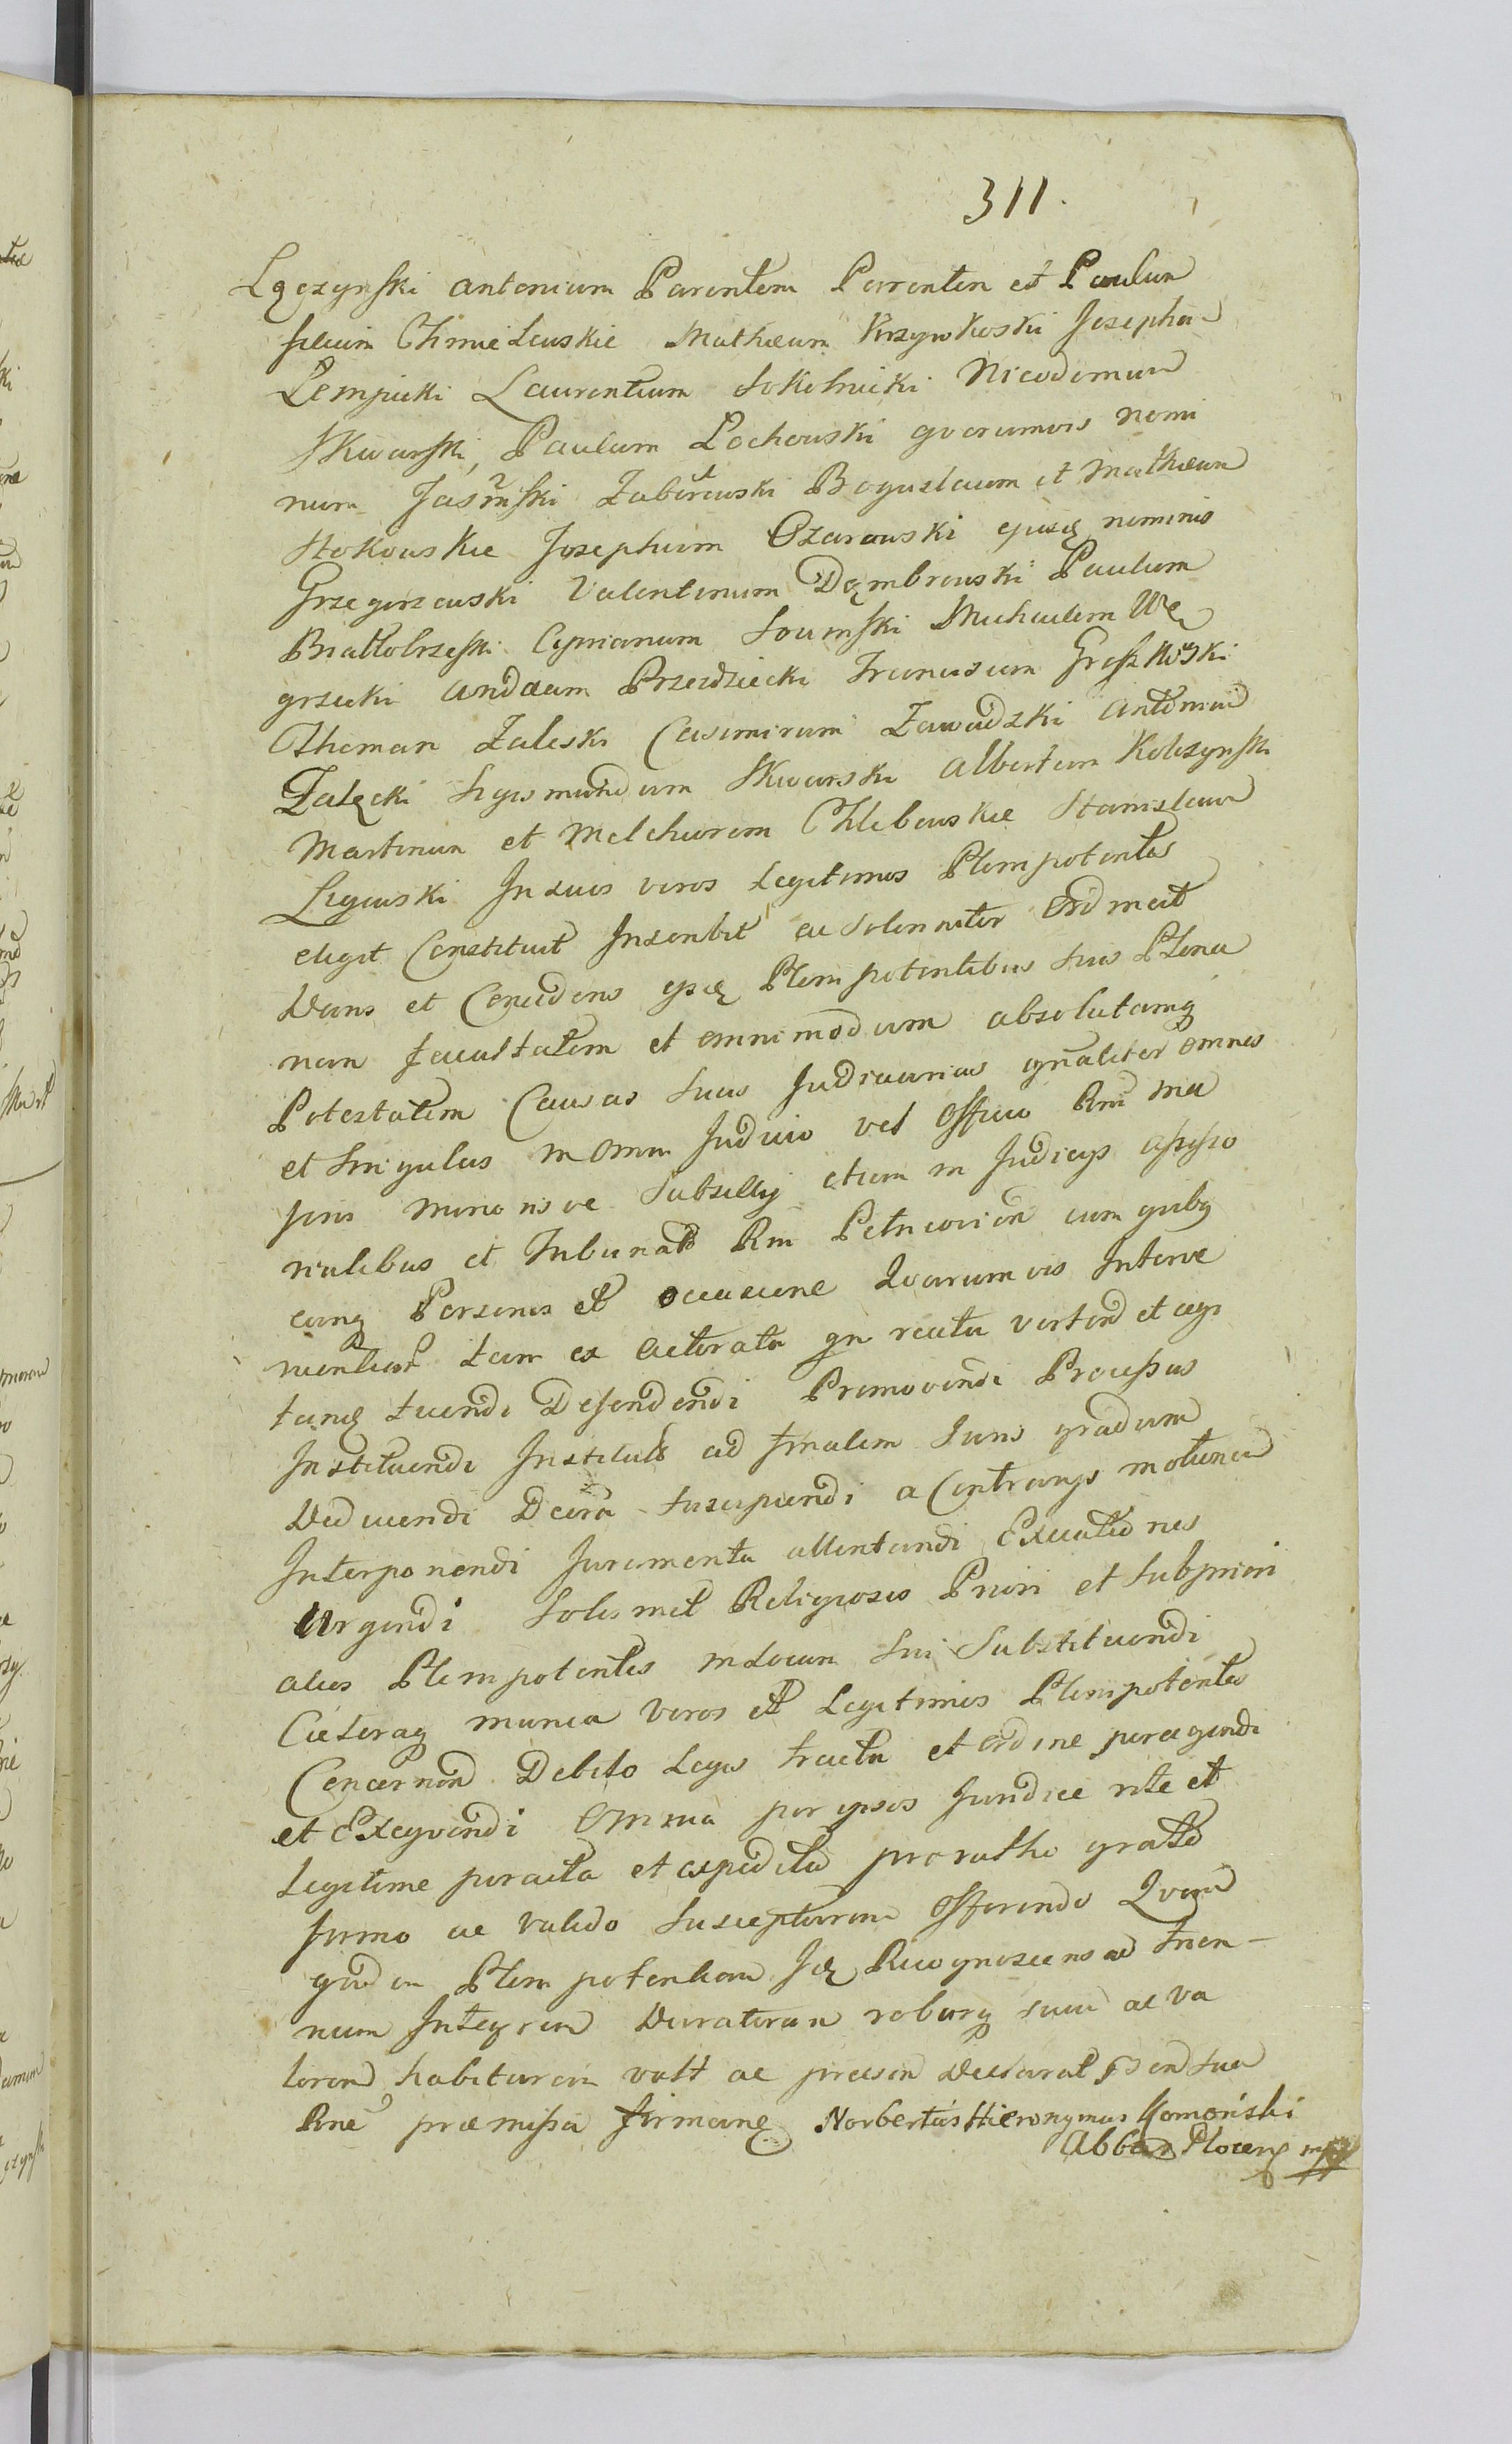 311.
Łączynski Antonium Parentem Parenten et Paulum
filium Chmielewskie Mathæum Krzywkoski Josephū
Lempicki Laurentium Sokolnicki Nicodemum
Skwarski, Paulum Lochowski quorumvis nomi
num Jasinski Zaborowski Boguslaum et Mathæum
Stokowskie Josephum Ozarowski ejusq nominis
Grzegorzewski Valentinum Dąmbrowski Paulum
Białłobrzeski Ciprianum Soumski Michaelem We
grzecki Andæam Przezdziecki Franciscum
Thoman Zaleski Casimirum Zawadzki Antoniū
Załęcki Sigismundum Skwarski Albertum Kolczynski
Martinum et Melchiorem Chlebowskie Stanislaum
Ligowski In suos veros Legitimos Plenipotentes
eligit Constituit Inscribit ac Solenniter Ordinat
Dans et Concedens ipsis Plenipotentibus suis Plena
nam facultatem et omnimodam absolutamq
Potestatem Causas suas Judiciarias gnaliter omnes
et singulas in omni Judicio vel Officio Rni ma
joris minorisve Subsellij etiam in Judicijs assesso
rialibus et Tribunalb Rni Petricovien cum quibq
cunq Personis et occasione Quarumvis Interve
nientium tam ex actoratu qn reatu verten et agi
tanq tuendi Defendendi Promovendi Processus
Instituendi Institutos ad finalem Juris gradum
Deducendi Decra suscipiendi a Contrarijs motionem
Interponendi Juramenta attentandi Executiones
Urgendi Solismet Religiosis Priori et Subpriori
alios Plenipotentes in locum sui Substituendi
Cæteraq munia veros et Legitimos Plenipotentes
Concernen Debito Legis tractu et ordine peragendi
et Exeqvendi Omnia per ipsos Juridice rite et
Legitime peracta et expedita pro ratho grato
firmo ac valido Suscepturum Offerendo Quam
quidem Plenipotentiam Recognoscens ad trien-
nium Integrum Duraturam roburq suum ac va
lorem habituram vult ac præsen Declarat
Rne præmissa firmanq Norbertus Hieronymus Homoński
Abbas Plocen mpp